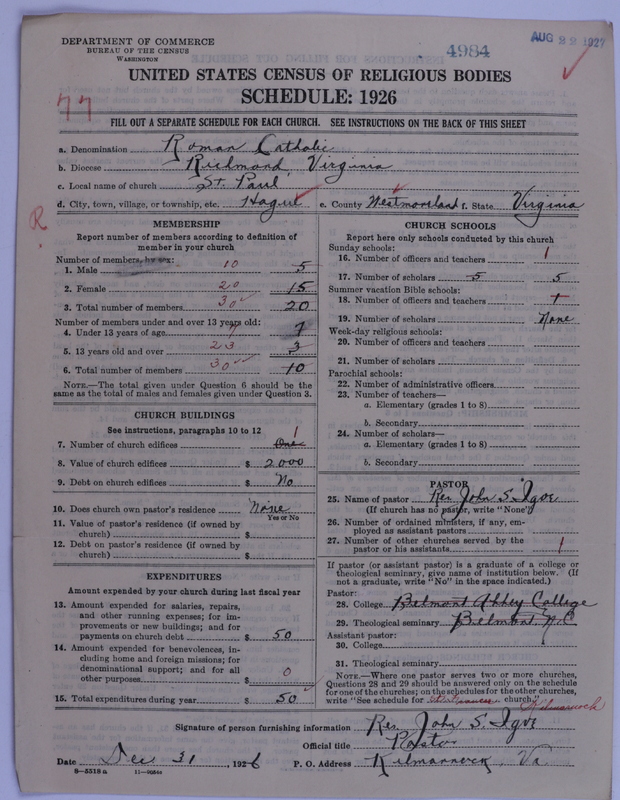 DEPARTMENT OF COMMERCE
BUREAU OF THE CENSUS
WASHINGTON
4984
AUG 22 1927
UNITED STATES CENSUS OF RELIGIOUS BODIES
SCHEDULE: 1926
77
FILL OUT A SEPARATE SCHEDULE FOR EACH CHURCH. SEE INSTRUCTIONS ON THE BACK OF THIS SHEET
a. Denomination Roman Catholic
b. Diocese Richmond, Virginia
c. Local name of church St. Paul
d. City, town, village, or township, etc. Hague e. County Westmoreland f. State Virginia
R
MEMBERSHIP
Report number of members according to definition of
member in your church
Number of members, by sex:
1. Male 10 5
2. Female 20 15
3. Total number of members 30 20
Number of members under and over 13 years old:
4. Under 13 years of age 7 7
5. 13 years old and over 23 3
6. Total number of members 30 10
NOTE.—The total given under Question 6 should be the
same as the total of males and females given under Question 3.
CHURCH BUILDINGS
See instructions, paragraphs 10 to 12
7. Number of church edifices One 1
8. Value of church edifices $ 2000
9. Debt on church edifices $ No
10. Does church own pastor's residence None
Yes or No
11. Value of pastor's residence (if owned by
church) $
12. Debt on pastor's residence (if owned by
church) $
EXPENDITURES
Amount expended by your church during last fiscal year
13. Amount expended for salaries, repairs,
and other running expenses; for im-
provements or new buildings; and for
payments on church debt $ 50
14. Amount expended for benevolences, in-
cluding home and foreign missions; for
denominational support; and for all
other purposes $ 0
15. Total expenditures during year $ 50
CHURCH SCHOOLS
Report here only schools conducted by this church
Sunday schools:
16. Number of officers and teachers 1
17. Number of scholars 5 5
Summer vacation Bible schools:
18. Number of officers and teachers 1
19. Number of scholars None
Week-day religious schools:
20. Number of officers and teachers
21. Number of scholars
Parochial schools:
22. Number of administrative officers
23. Number of teachers—
a. Elementary (grades 1 to 8)
b. Secondary
24. Number of scholars—
a. Elementary (grades 1 to 8)
b. Secondary
PASTOR
25. Name of pastor Rev. John S. Igoe
(If church has no pastor, write "None")
26. Number of ordained ministers, if any, em-
ployed as assistant pastors
27. Number of other churches served by the
pastor or his assistants 1
If pastor (or assistant pastor) is a graduate of a college or
theological seminary, give name of institution below. (If
not a graduate, write "No" in the space indicated.)
Pastor:
28. College Belmont Abbey College
29. Theological seminary Belmont N.C
Assistant pastor:
30. College
31. Theological seminary
NOTE.—Where one pastor serves two or more churches,
Questions 28 and 29 should be answered only on the schedule
for one of the churches; on the schedules for the other churches,
write "See schedule for St Francis, church."
Kilmarnock
Signature of person furnishing information Rev. John S. Igoe
Official title Pastor
Date Dec 31, 1926 P. O. Address Kilmarnock, Va.
8-5518a 11-9055d